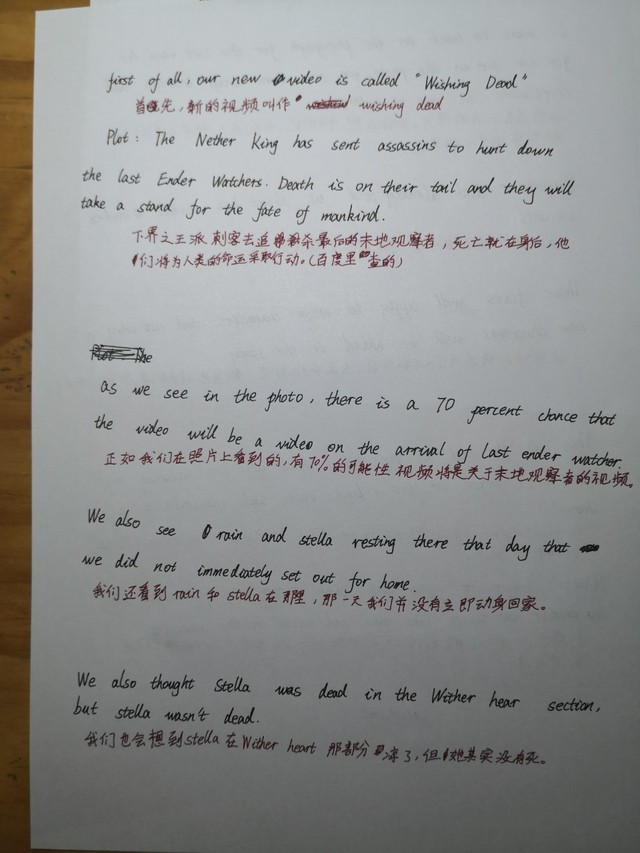 first of all, our new video is called "Wishing Dead"
首先,新的视频叫作 wishing dead
Plot: The Nether King has sent assassins to hunt down
the last Ender Watchers. Death is on their tail and they will
take a stand for the fate of mankind.
下界之王派刺客去追杀最后的末地观察者,死亡就在身后,他
们将为人类的命运采取行动。(百度里查的)
Plot: The
as we see in the photo, there is a 70 percent chance that
the video will be a video on the arrival of last ender watcher.
正如我们在照片上看到的,有70%的可能性视频将是关于末地观察者的视频。
We also see rain and stella resting there that day that
we did not immediately set out for home.
我们还看到rain和stella在那里,那一天我们并没有立即动身回家。
We also thought Stella was dead in the Wither hear section,
but stella wasn't dead.
我们也会想到stella在Wither heart那部分 了,但她其实没有死。